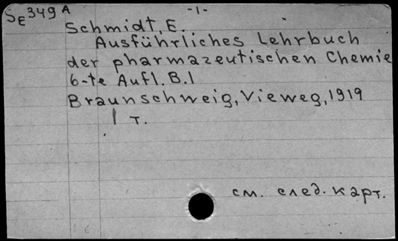 SE349A -1-
Schmidt, E.
Ausführliches Lehrbuch
der pharmazeutischen Chemie
6-te Aufl. B.1
Braunschweig, Vieweg, 1919
1 т.
см. след. карт.